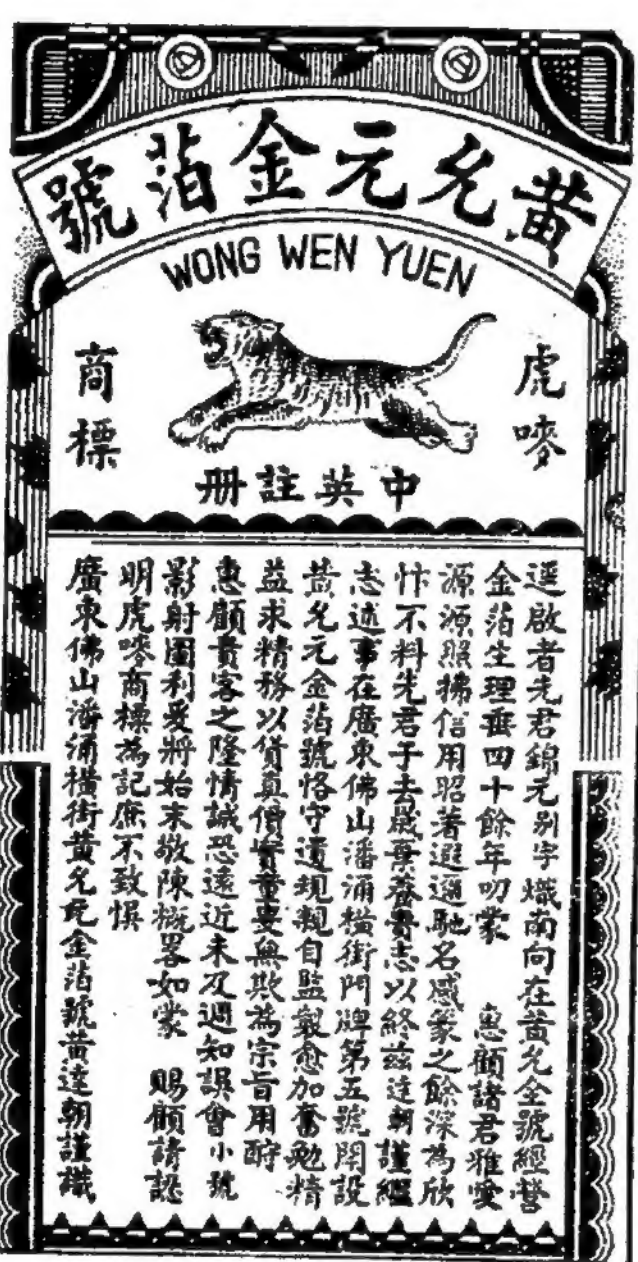 黃允元金箔號
WONG WEN YUEN
虎嘜
商標
中英註冊
逕啟者先君錦元別字熾南向在黃允全號經營
金箔生理垂四十餘年叨蒙 惠顧諸君雅愛
源源照拂信用昭著遐邇馳名感篆之餘深為欣
忭不料先君于去歲棄養賫志以終茲達朝謹繼
志述事在廣東佛山潘涌橫街門牌第五號開設
黃允元金箔號恪守遺規親自監製愈加奮勉精
益求精務以貨真價實童叟無欺為宗旨用酧
惠顧貴客之隆情誠恐遠近未及週知誤會小號
影射圖利爰將始末敬陳概畧如蒙 賜顧請認
明虎嘜商標為記庶不致悞
廣東佛山潘涌橫街黃允元金箔號黃達朝謹識